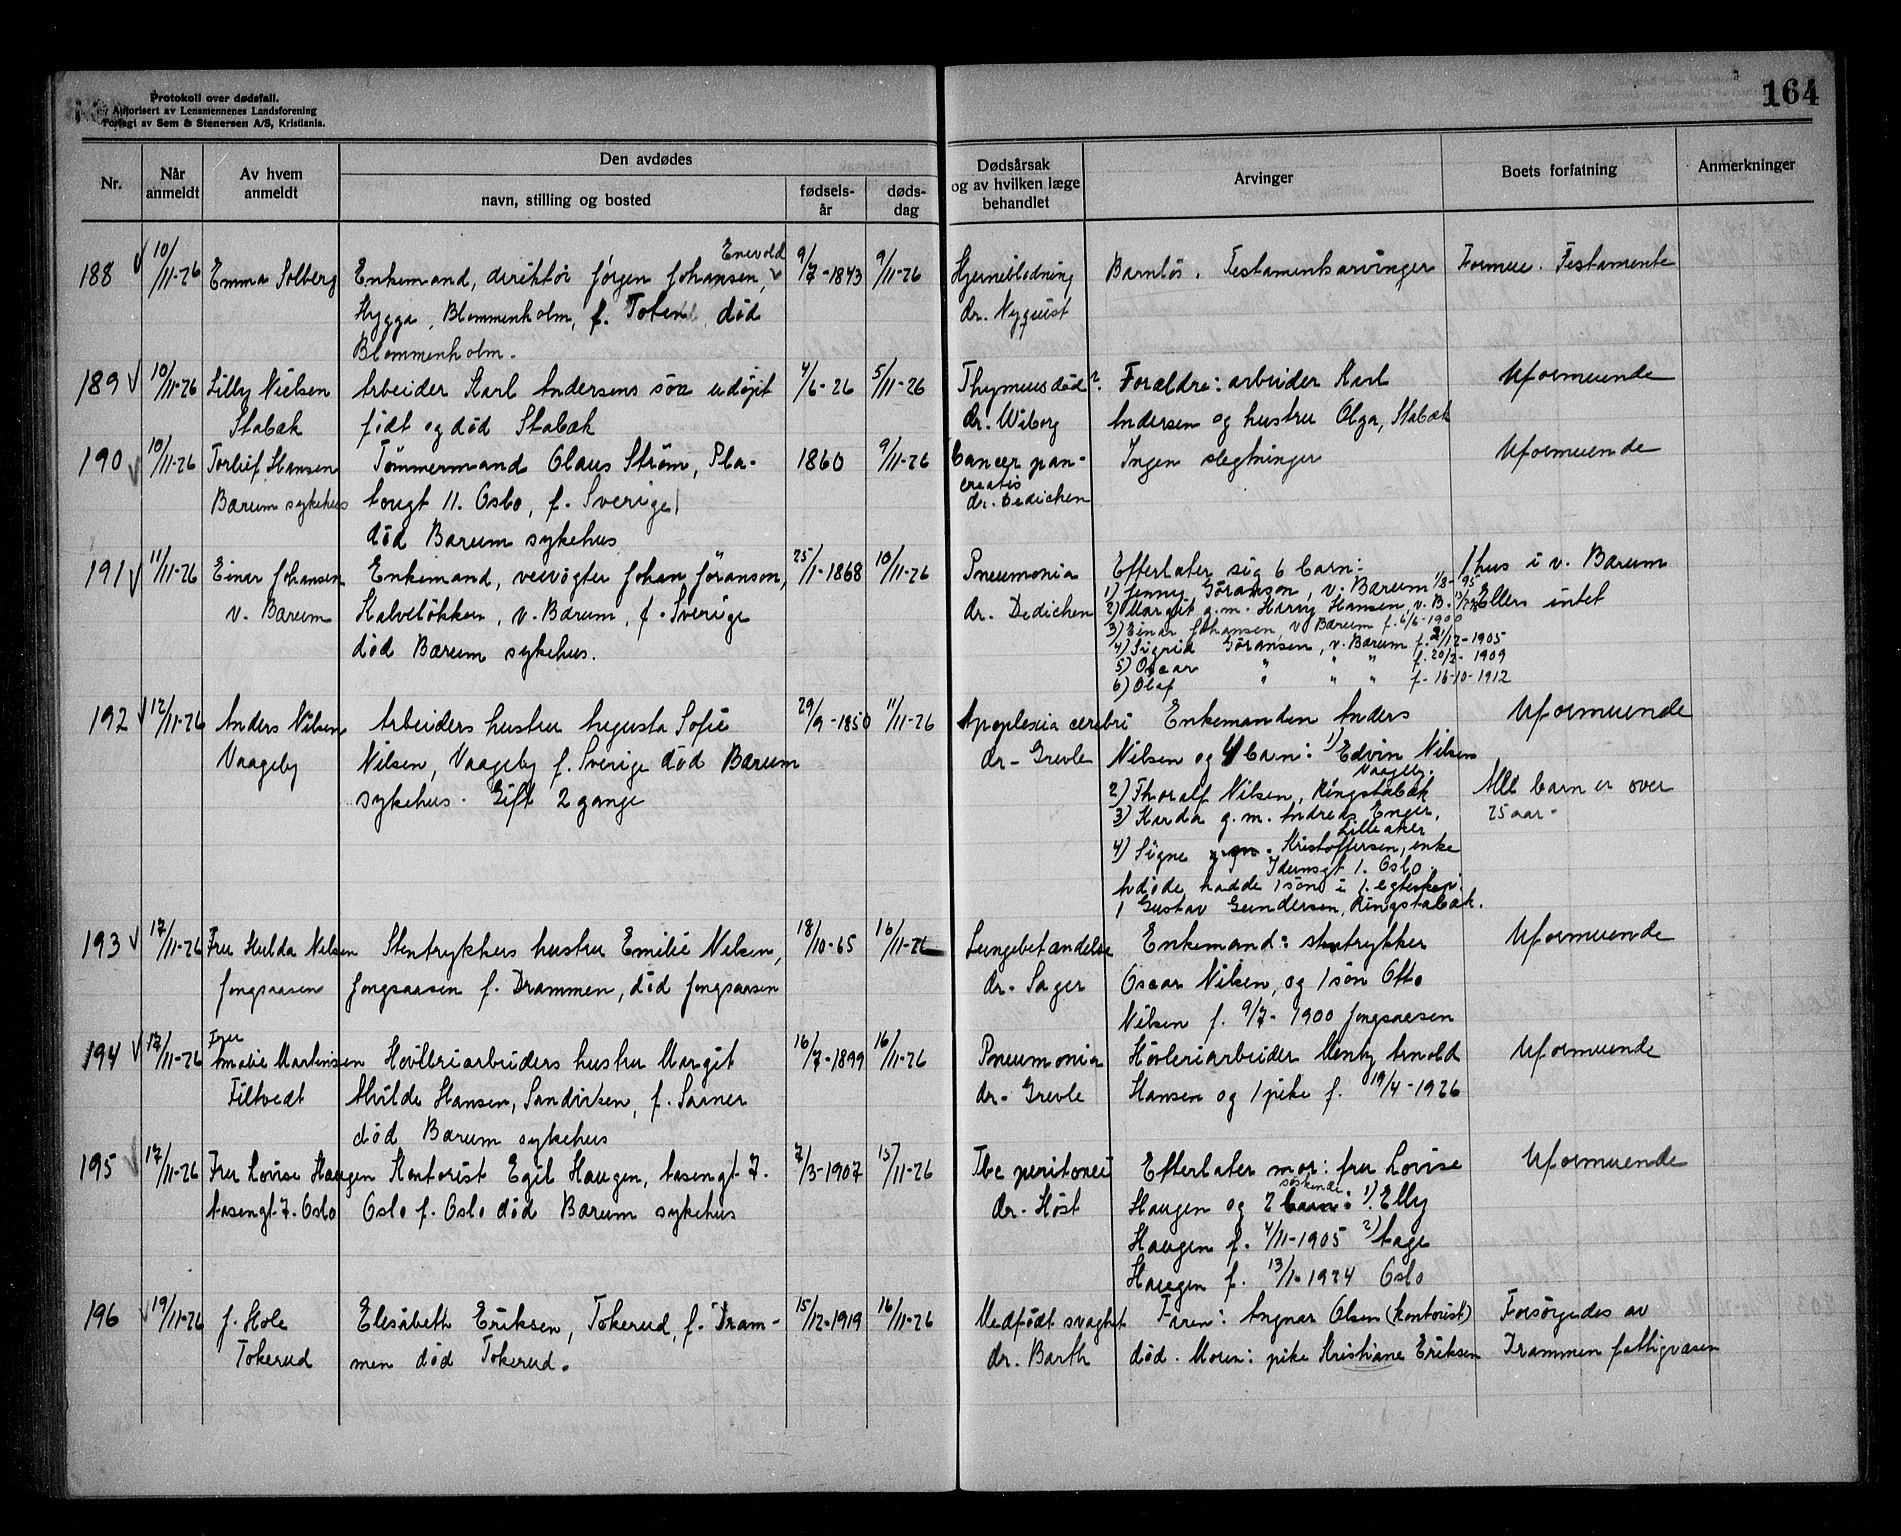 164
Protokoll over dødsfall.
Autorisert av Lensmennenes Landsforening
Forlagt av Sem & Stenersen A/S, Kristiania.
Nr.
Når anmeldt
Av hvem anmeldt
Den avdødes
navn, stilling og bosted
fødsels-år
døds-dag
Dødsårsak og av hvilken læge behandlet
Arvinger
Boets forfatning
Anmerkninger
188 10/11-26 Emma Solberg
Enevold
Enkemand, direktör Jørgen Johansen,
Hygga, Blommenholm, f. Toten, död
Blommenholm.
9/7-1843 9/11-26
Hjerneblødning
dr. Nyquist
Barnløs. Testamentsarvinger
Formue. Testamente
189 10/11-26 Lilly Nielsen
Stabæk
Arbeider Karl Andersens søn udøpt
født og død Stabæk
4/6-26 5/11-26
Thymusdød?
dr. Wiborg
Forældre: arbeider Karl
Andersen og hustru Olga, Stabæk
Uformuende
190 10/11-26 Torleif Hansen
Bærum sykehus
Tømmermand Olaus Strøm, Pla-
tougt 11. Oslo, f. Sverige
død Bærum sykehus
1860 9/11-26
Cancer pan-
creatis
dr. Dedichen
Ingen slegtninger
Uformuende
191 11/11-26 Einar Johansen
v. Bærum
Enkemand, veivogter Johan Jöranson,
Kalveløkken, v. Bærum, f. Sverige
död Bærum sykehus.
25/1-1868 10/11-26
Pneumonia
dr. Dedichen
Efterlater sig 6 barn:
1) Jenny Göranson, v. Bærum 1/8-95
2) Margit g.m. Harry Hansen, v. B.
3) Einar Johansen, v. Bærum f. 6/6-1900
4) Sigrid Göransen, v. Bærum f. 2/12-1905
5) Oscar " " " f. 20/2-1909
6) Olaf " " " f. 16-10-1912
1 hus i v. Bærum
Ellers intet
192 12/11-26 Anders Nilsen
Vaageby
Arbeiders hustru Augusta Sofie
Nilsen, Vaageby f. Sverige död Bærum
sykehus. Gift 2 gange
29/9-1850 11/11-26
Apoplexia cerebri
dr. Grevle
Enkemanden Anders
Nilsen og 4 barn: 1) Edvin Nilsen
Vaageby.
2) Thoralf Nilsen, Ringstabæk
3) Karda g.m. Andreas Enger,
Lilleaker
4) Signe Kristoffersen, enke
Idunsgt 1. Oslo.
Avdøde hadde 1 søn i 1. egteskap.
1 Gustav Gundersen, Ringstabæk.
Uformuende
Alle barn er over
25 aar.
193 17/11-26 Fru Hulda Nilsen
Jongsaasen
Stentrykkers hustru Emilie Nilsen,
Jongsaasen f. Drammen, død Jongsaasen
18/10-65 16/11-26
Lungebetændelse
dr. Sager
Enkemand: stentrykker
Oscar Nilsen, og 1 søn Otto
Nilsen f. 9/7-1900 Jongsaasen
Uformuende
194 17/11-26 Fru
Amalie Martinsen
Tiltvedt
Høvleriarbeiders hustru Margit
Alvilde Hansen, Sandviken, f. Saaner
død Bærum sykehus
16/7-1899 16/11-26
Pneumonia
dr. Grevle
Høvleriarbeider Henky Arnold
Hansen og 1 pike f. 19/4-1926
Uformuende
195 17/11-26 Fru Lovise Haugen
Aasengt. 7. Oslo
Kontorist Egil Haugen, Aasengt. 7.
Oslo f. Oslo død Bærum sykehus
7/3-1907 15/11-26
Tbc peritonei
dr. Høst
Efterlater mor: fru Lovise
Haugen og 2 barn søskende: 1) Elly
Haugen f. 4/11-1905 2) Aage
Haugen f. 13/1-1924 Oslo
Uformuende
196 19/11-26 J. Hole
Tokerud
Elisabeth Eriksen, Tokerud, f. Dram-
men død Tokerud.
15/12-1919 16/11-26
Medfødt svaghet
dr. Barth
Faren: Angnar Olsen (kontorist)
død. Moren: pike Kristiane Eriksen
Forsørgedes av
Drammen fattigvæsen